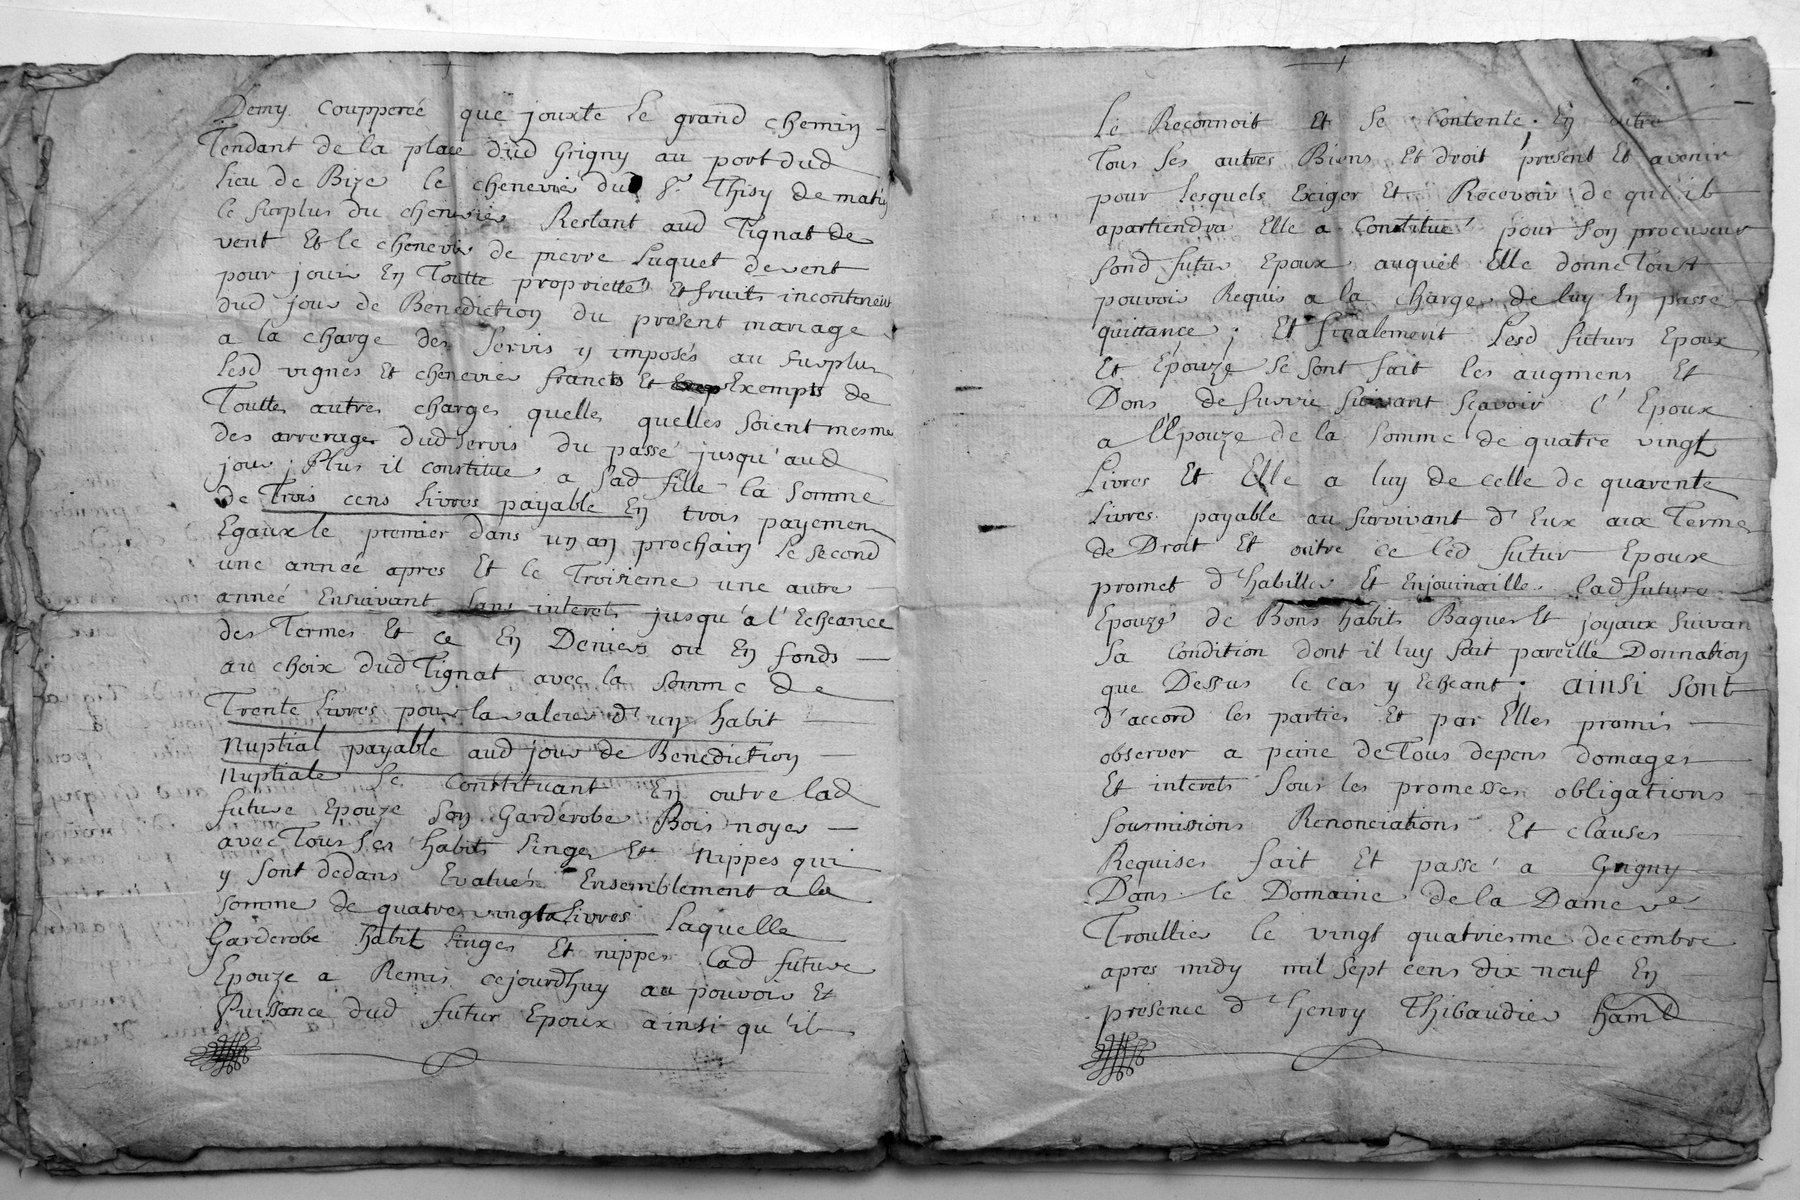 Demy Coupperée que jouxte le grand chemin
Tendant de la place dud Grigny au port dud
lieu de Bize le chenevié du Sr. Thisy de matin
le surplus du chenevier Restant aud Tignat de
vent Et le chenevie de pierre Luquet de vent
pour jouir En Toutte proprietté Et fruits incontinent
dud jour de Benediction du present mariage
a la charge des servis y imposés au surplus
lesd vignes Et chenevier francts Et Exempts de
Touttes autres charges quelles quelles soient mesme
des arrerages dud servis du passé jusqu'aud
jour ; Plus il constitue a sad fille la somme
de Trois cens livres payable En trois payemens
Egaux le premier dans un an prochain le second
une année apres Et le Troisieme une autre
année Ensuivant sans interets jusqu'a l'Echeance
des Termes Et ce En Deniers ou En fonds
au choix dud Tignat avec la somme de
Trente livres pour la valeur d'un habit
Nuptial payable aud jour de Benediction
Nuptiale se Constituant En outre lad
future Epouze son Garderobe Bois noyer
avec Tous ses habits linges Et Nippes qui
y sont dedans Evalués Ensemblement a la
somme de quatre vingts Livres laquelle
Garderobe habit linges Et nippes lad future
Epouze a Remis cejourdhuy au pouvoir Et
Puissance dud futur Epoux ainsi qu'il
Le Reconnoit Et se Contente ; En outre
Tous ses autres Biens Et droit present Et avenir
pour lesquels Exiger Et Recevoir de qui il
apartiendra Elle a Constitué pour son procureur
sond futur Epoux auquel Elle donne Tout
pouvoir Requis a la charge de luy En passer
quittance ; Et finalement Lesd futurs Epoux
Et Epouze se sont fait les augmens Et
Dons de survie suivant sçavoir l'Epoux
a l'Epouze de la somme de quatre vingt
Livres Et Elle a luy de celle de quarente
Livres payable au survivant d'Eux aux Termes
de Droit Et outre ce led futur Epoux
promet d'habiller Et Enjouinailler lad future
Epouze de Bons habits Bagues Et joyaux suivan
sa Condition dont il luy fait pareille Donnation
que Dessus le cas y Echeant ; ainsi sont
D'accord les parties Et par Elles promis
observer a peine de Tous depens domages
Et interets sous les promesses obligations
soumissions Renonciations Et clauses
Requises fait Et passé a Grigny
Dans le Domaine de la Dame ve
Troullier le vingt quatriesme decembre
apres midy mil sept cens dix neuf En
présence d'henry Thibaudier